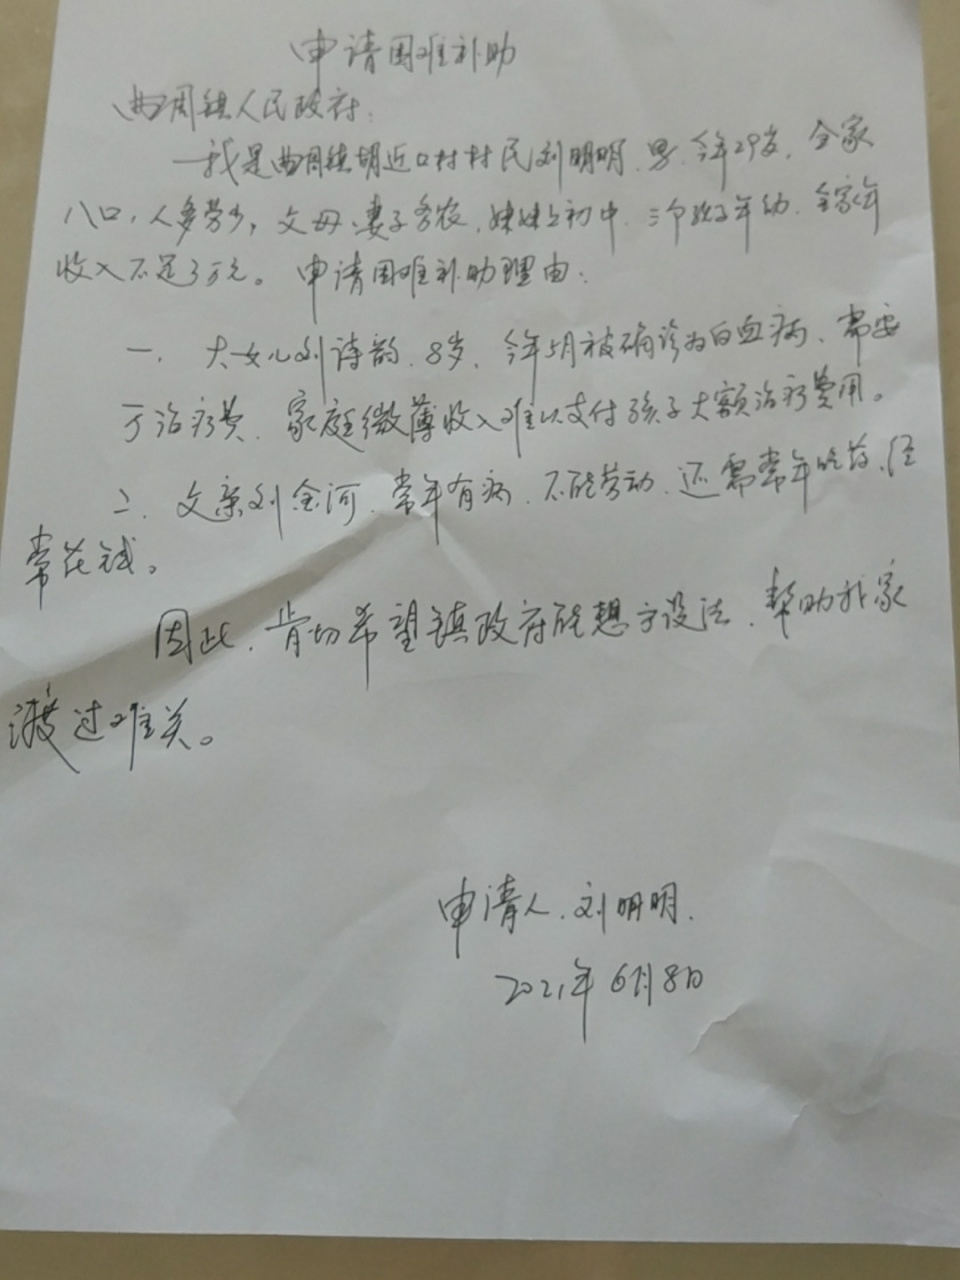 申请困难补助
曲周镇人民政府:
我是曲周镇胡近口村村民刘明明,男,今年29岁,全家
八口,人多劳少,父母、妻子务农,妹妹上初中,三个孩子年幼,全家年
收入不足3万元。申请困难补助理由:
一、大女儿刘诗韵,8岁,今年5月被确诊为白血病,需要
治疗费,家庭微薄收入难以支付孩子大额治疗费用。
二、父亲刘金河,常年有病,不能劳动,还需常年吃药,经
常花钱。
因此,肯切希望镇政府能想方设法,帮助我家
渡过难关。
申请人:刘明明.
2021年6月8日